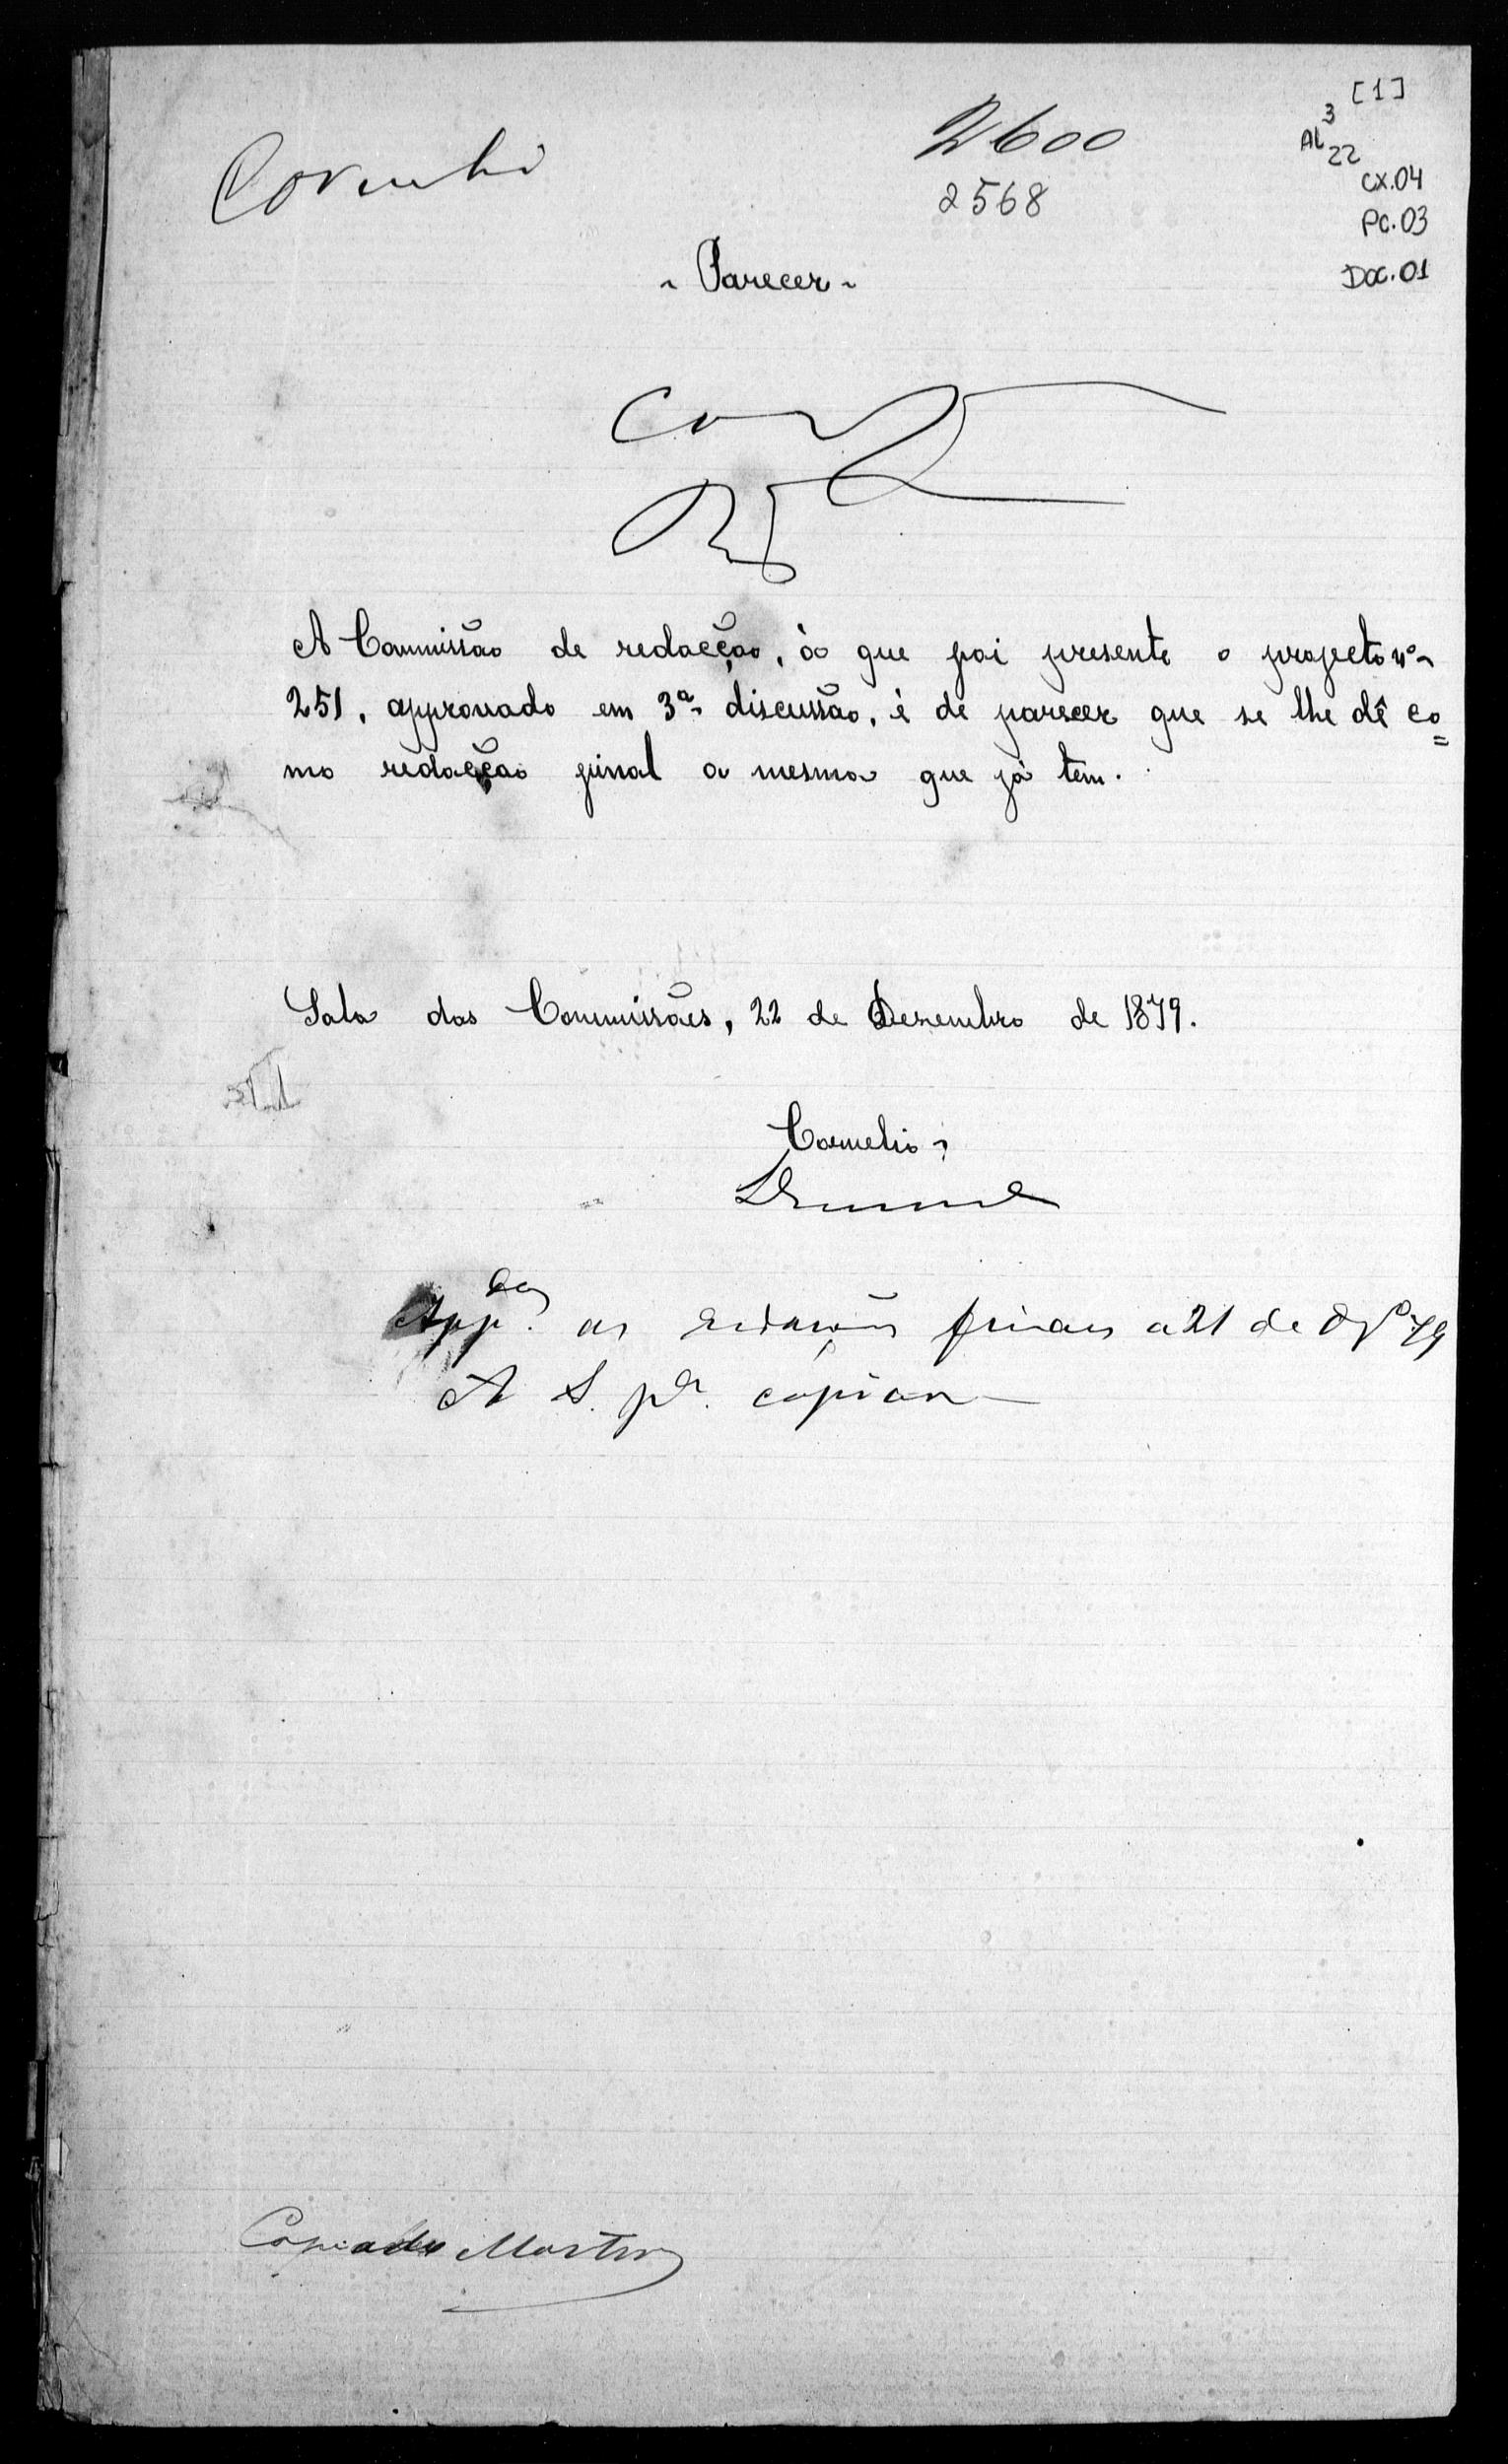 [1]
3
AL
22
2600
2568
CX.04
PC.03
Doc.01
~ Parecer ~
A Commissão de redacção, à que foi presente o projecto nº
251, approvado em 3ª discussão, é de parecer que se lhe dê co=
mo redacção final a mesma que já tem.
Sala das Commissões, 22 de Dezembro de 1879.
Cornelio
Appdas. as redacções finaes a 21 de Dbro 79
A S. pa. copiar
Copiado Martins